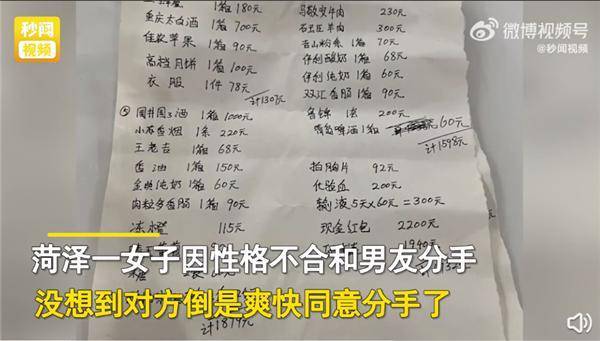 秒闻
视频
微博视频号
@秒闻视频
1箱180元
重庆太白酒 1箱 700元
佳歌苹果 1箱 90元
高档月饼 1箱 100元
衣服 1件 78元
230元
300元
1箱 70元
伊利酸奶 1箱 68元
伊利纯奶 1箱 60元
双汇香肠 1箱 90元
什锦 1盒 200元
青岛啤酒1箱 60元
计1598元
⑤ 1箱 1000元
小苏香烟 1条 220元
王老吉 1箱 68元
香油 1箱 150元
金典纯奶 1箱 60元
肉粒多香肠 1箱 90元
冻橙 115元
糖
计1819元
拍胸片 92元
化验血 200元
输液5天×60元=300元
现金红包 2200元
1940元
菏泽一女子因性格不合和男友分手
没想到对方倒是爽快同意分手了